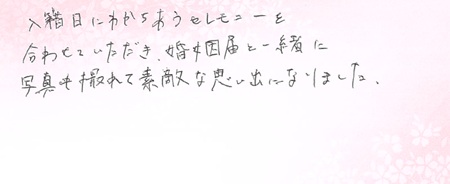 入籍日にわからあうセレモニーを
合わせていただき、婚姻届と一緒に
写真も撮れて素敵な思い出になりました。